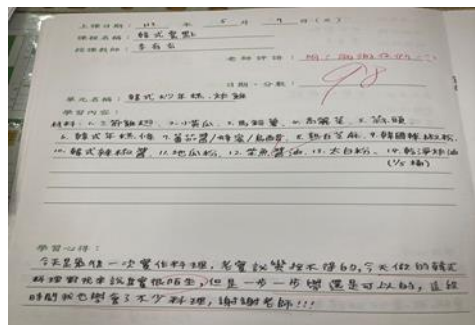 上課日期：113 年 5 月 9 日 (四)
課程名稱：韓式餐點
授課教師：李
老師評語：
日期、分數：98
單元名稱：韓式炒年糕、炸雞
學習內容：
材料：1. 2. 小黃瓜 3. 馬鈴薯 4. 高麗菜 5. 蒜頭
6. 韓式年糕條 7. 蕃茄醬/蜂蜜/烏醋 8. 熟白芝麻 9. 韓國辣椒粉
10. 韓式辣椒醬 11. 地瓜粉 12. 柴魚醬油 13. 太白粉 14. 乾淨炸油
(1/5桶)
學習心得：
今天是最後一次實作料理，老實說蠻捨不得的，今天做的韓式
料理對我來說其實很陌生，但是一步一步學還是可以的，這段
時間我也學會了不少料理，謝謝老師!!!